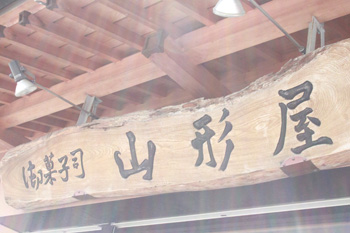 御菓子司 山形屋